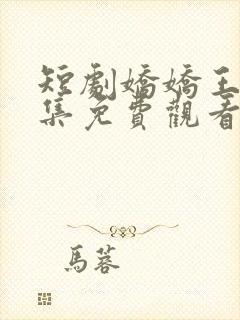 短劇嬌嬌王
集免費觀看
馬蓉